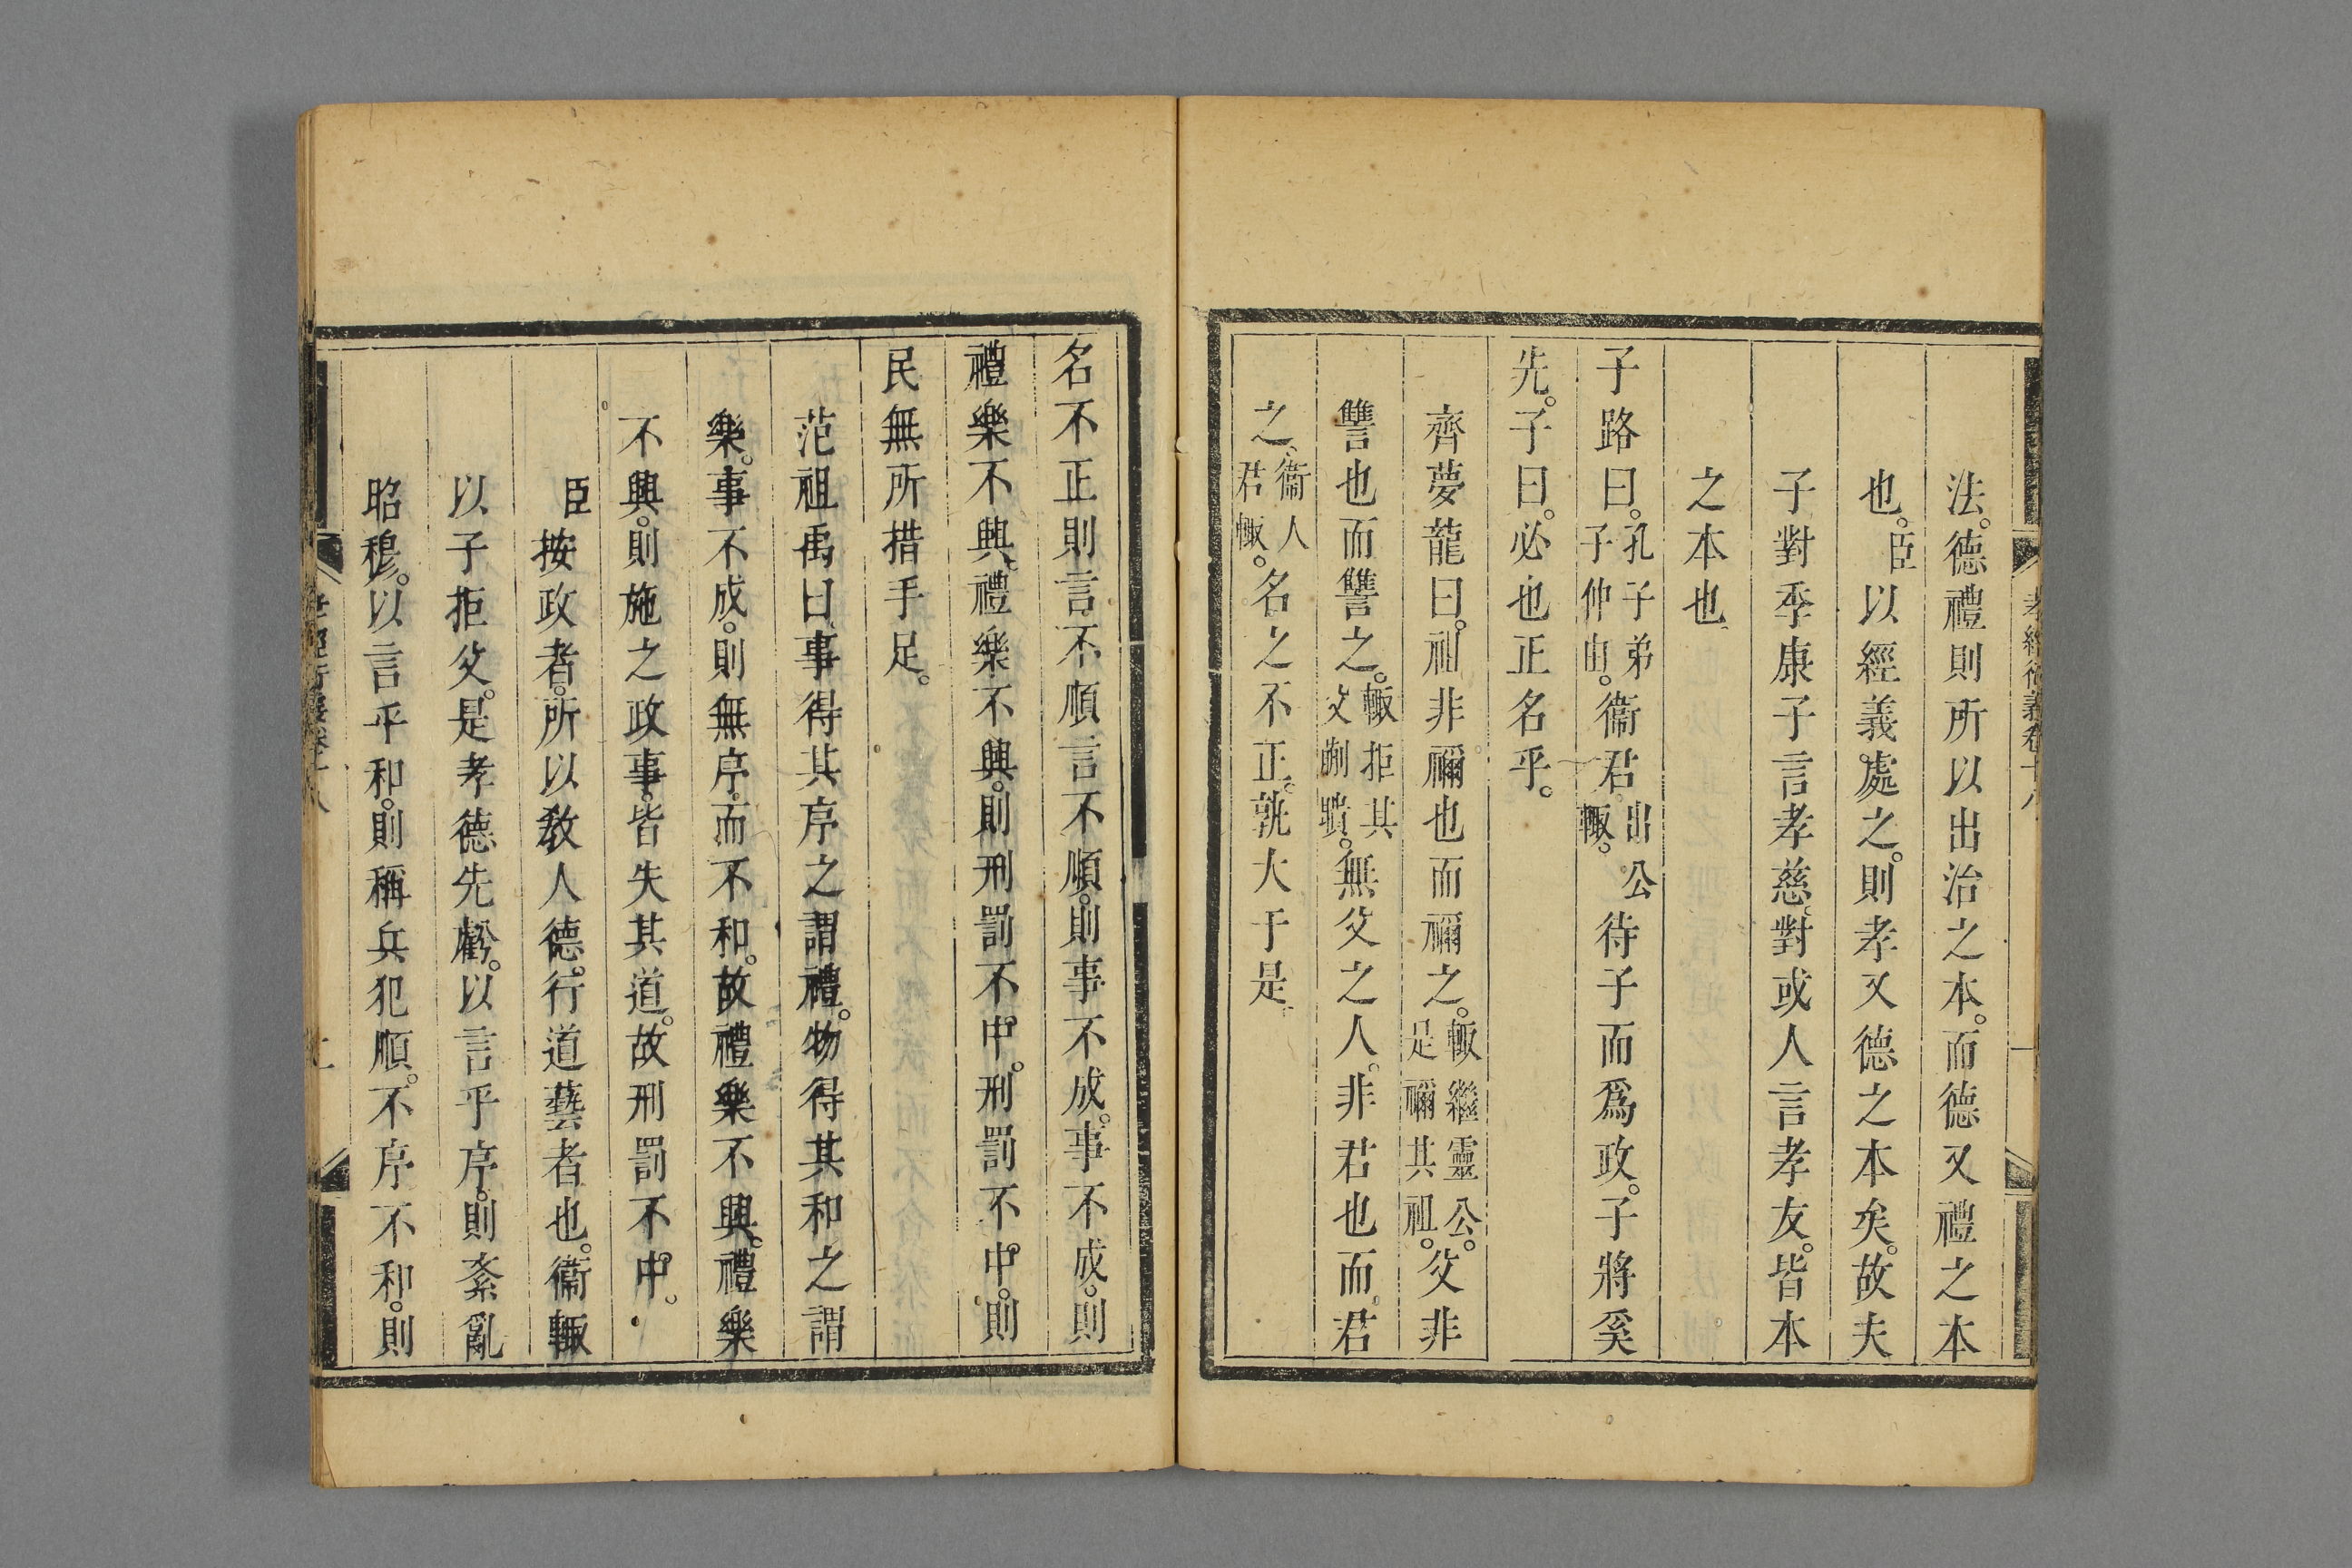 孝經衍義卷十八
法。德禮則所以出治之本。而德又禮之本
也。臣以經義處之。則孝又德之本矣。故夫
子對季康子言孝慈。對或人言孝友。皆本
之本也。
子路曰。孔子弟子仲由。衞君出公輒。待子而爲政。子將奚
先。子曰。必也正名乎。
齊夢龍曰。祖非禰也而禰之。輒繼靈公。是禰其祖。父非
讐也而讐之。輒拒其父蒯聵。無父之人。非君也而君
之。衞人君輒。名之不正。孰大于是。
名不正則言不順。言不順。則事不成。事不成。則
禮樂不興。禮樂不興。則刑罰不中。刑罰不中。則
民無所措手足。
范祖禹曰。事得其序之謂禮。物得其和之謂
樂。事不成。則無序。而不和。故禮樂不興。禮樂
不興。則施之政事。皆失其道。故刑罰不中。
臣按政者。所以敎人德。行道藝者也。衞輒
以子拒父。是孝德先虧。以言乎序。則紊亂
昭穆。以言乎和。則稱兵犯順。不序不和。則